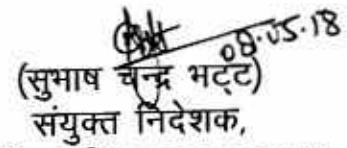 08.05.18
(सुभाष चन्द्र भट्ट)
संयुक्त निदेशक,